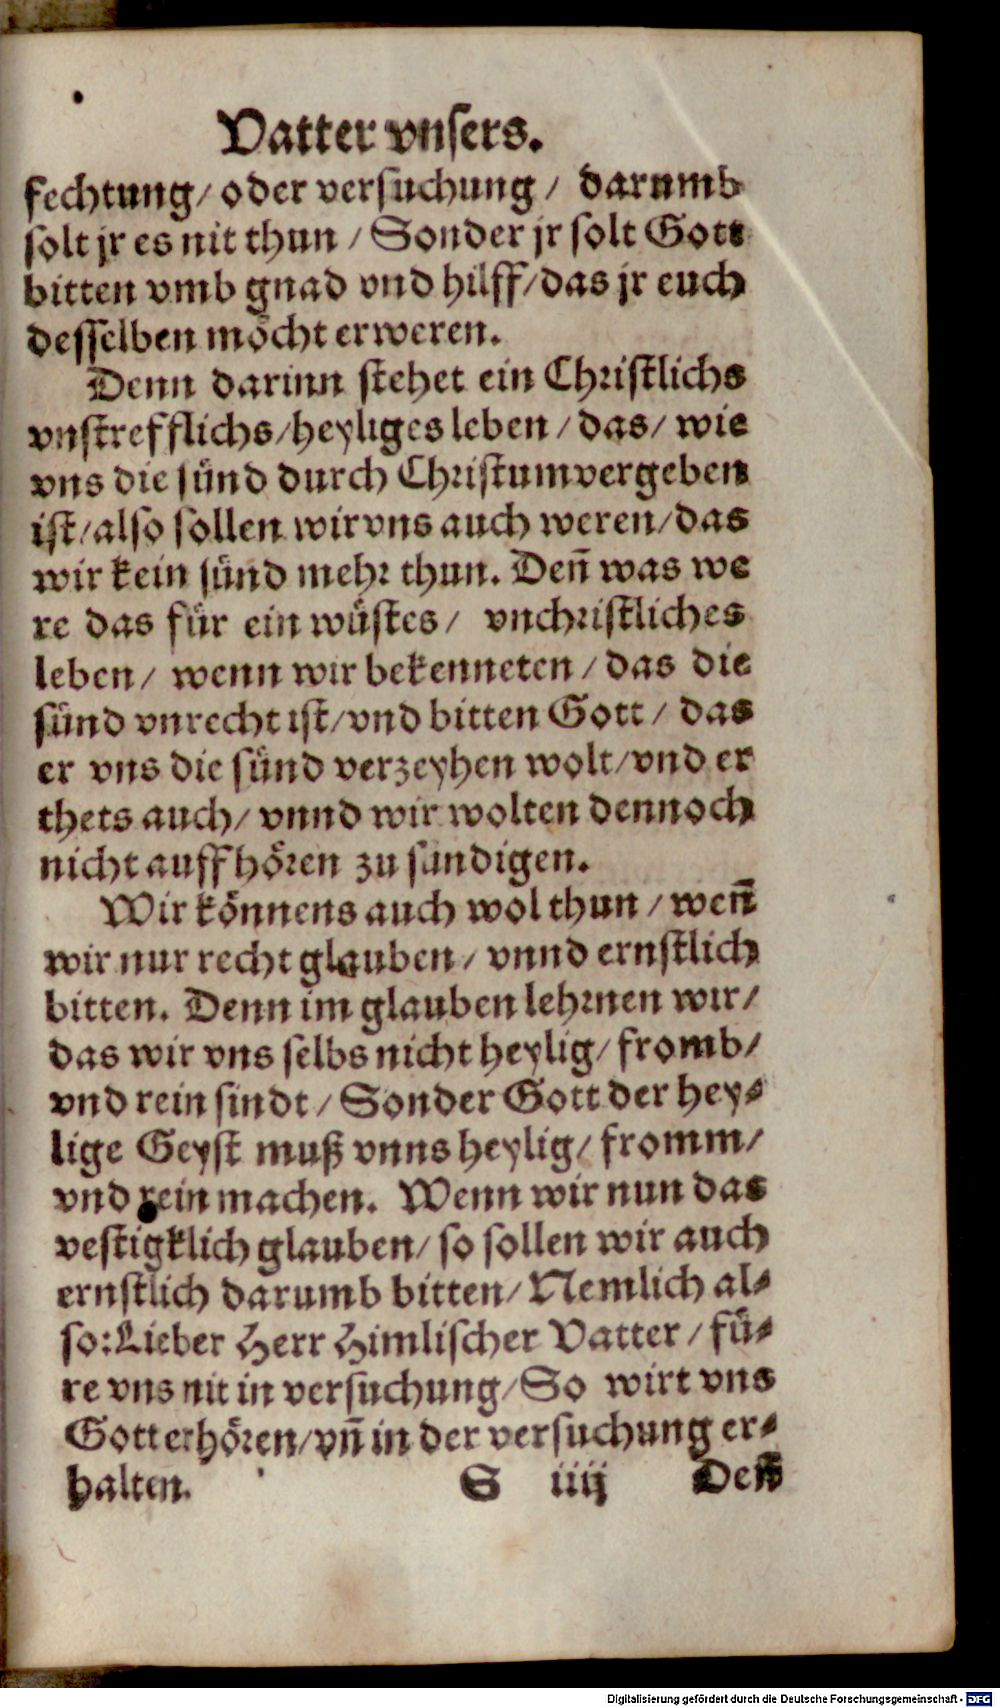 Vatter vnsers.
fechtung/ oder versuchung/ darumb
solt jr es nit thun / Sonder jr solt Gott
bitten vmb gnad vnd hilff/das jr euch
desselben möcht erweren.
Denn darinn stehet ein Christlichs
vnstrefflichs/heyliges leben/das/ wie
vns die sünd durch Christum vergeben
ist/also sollen wir vns auch weren/das
wir kein sünd mehr thun. Deñ was we
re das für ein wüstes/ vnchristliches
leben/ wenn wir bekenneten/das die
sünd vnrecht ist/vnd bitten Gott/ das
er vns die sünd verzeyhen wolt/vnd er
thets auch/ vnnd wir wolten dennoch
nicht auffhören zu sündigen.
Wir könnens auch wol thun/weñ
wir nur recht glauben/ vnnd ernstlich
bitten. Denn im glauben lehrnen wir/
das wir vns selbs nicht heylig/fromb/
vnd rein sindt/Sonder Gott der hey-
lige Geyst muß vnns heylig/ fromm/
vnd rein machen. Wenn wir nun das
vestigklich glauben/so sollen wir auch
ernstlich darumb bitten/Nemlich al-
so:Lieber Herr Himlischer Vatter/fü-
re vns nit in versuchung/So wirt vns
Gott erhören/vñ in der versuchung er-
halten. S iiij Deñ
Digitalisierung gefördert durch die Deutsche Forschungsgemeinschaft - DFG